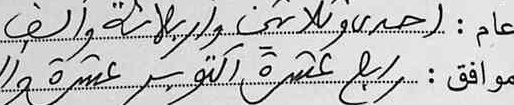 عام : احدى وثلاثين واربعمائة وألف
موافق : رابع عشرة اكتوبر عشرة وا